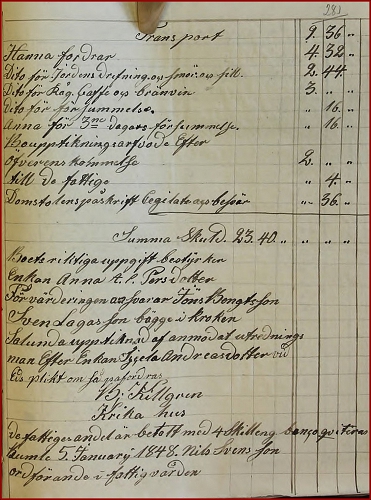 281
Transport 9. 36 "
Hanna fordrar 4. 32 "
Dito för Jordens drefning, och smör och sill. 2. 44. "
Dito för Råg, Caffe och bränvin 3. " "
Dito för försummelse. " 16. "
Anna för 3ne dagars försummelse. " 16. "
Bouppteckningsarfvode Efter
öfverenskommelse 2. " "
till de fattige " 4. "
Domstolens påskrift och besvär " 36. "
Summa Skuld. 23. 40. " " "
riktiga uppgift bestyrker
Enkan Anna Persdotter
För värderingen ansvarar Jöns Bengtsson
Sven Lagasson bägge i Kroken
Sålunda upptecknad af anmodat utrednings
man Efter Enkan Andreasdotter vid
Edsplikt om så påfordras
Killgren
Krika hus
de fattiges andel är betalt med 4 Skilling banco qviteras
5 January 1848. Nils Svensson
ordförande i fattigvården